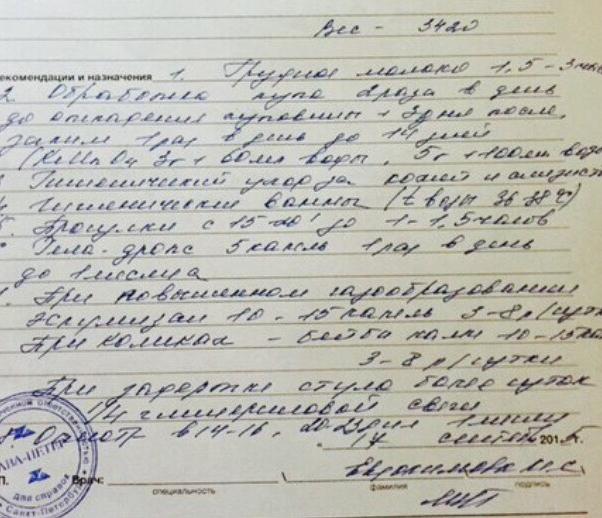 Вес - 3420
екомендации и назначения 1. Грудное молоко 1,5-3 час
2. Обработка пупа 2 раза в день
до отпадения пуповины + 3 дня после,
затем 1 раз в день до 14 дней
(KMnO4 3г + 60мл воды, 5г + 100мл воды
Гигиенический уход за кожей и слизист
4. Гигиенические ванны (t воды 36-38°C)
5. Прогулки с 15-20' до 1-1,5 часов
дропс 5 капель 1 раз в день
до 1 месяца
При повышенном газообразовании
Эспумизан 10-15 капель 3-8 р/сутк
При коликах - Бейби калм 10-15 кап
3-8 р/сутки
При задержке стула более суток
1/4 глицериновой свечи
Осмотр в 14-16, 20-22 дня 1 месяц
14 сентябр 2015
П. Врач:
специальность фамилия подпись
для справок
Санкт-Петербург